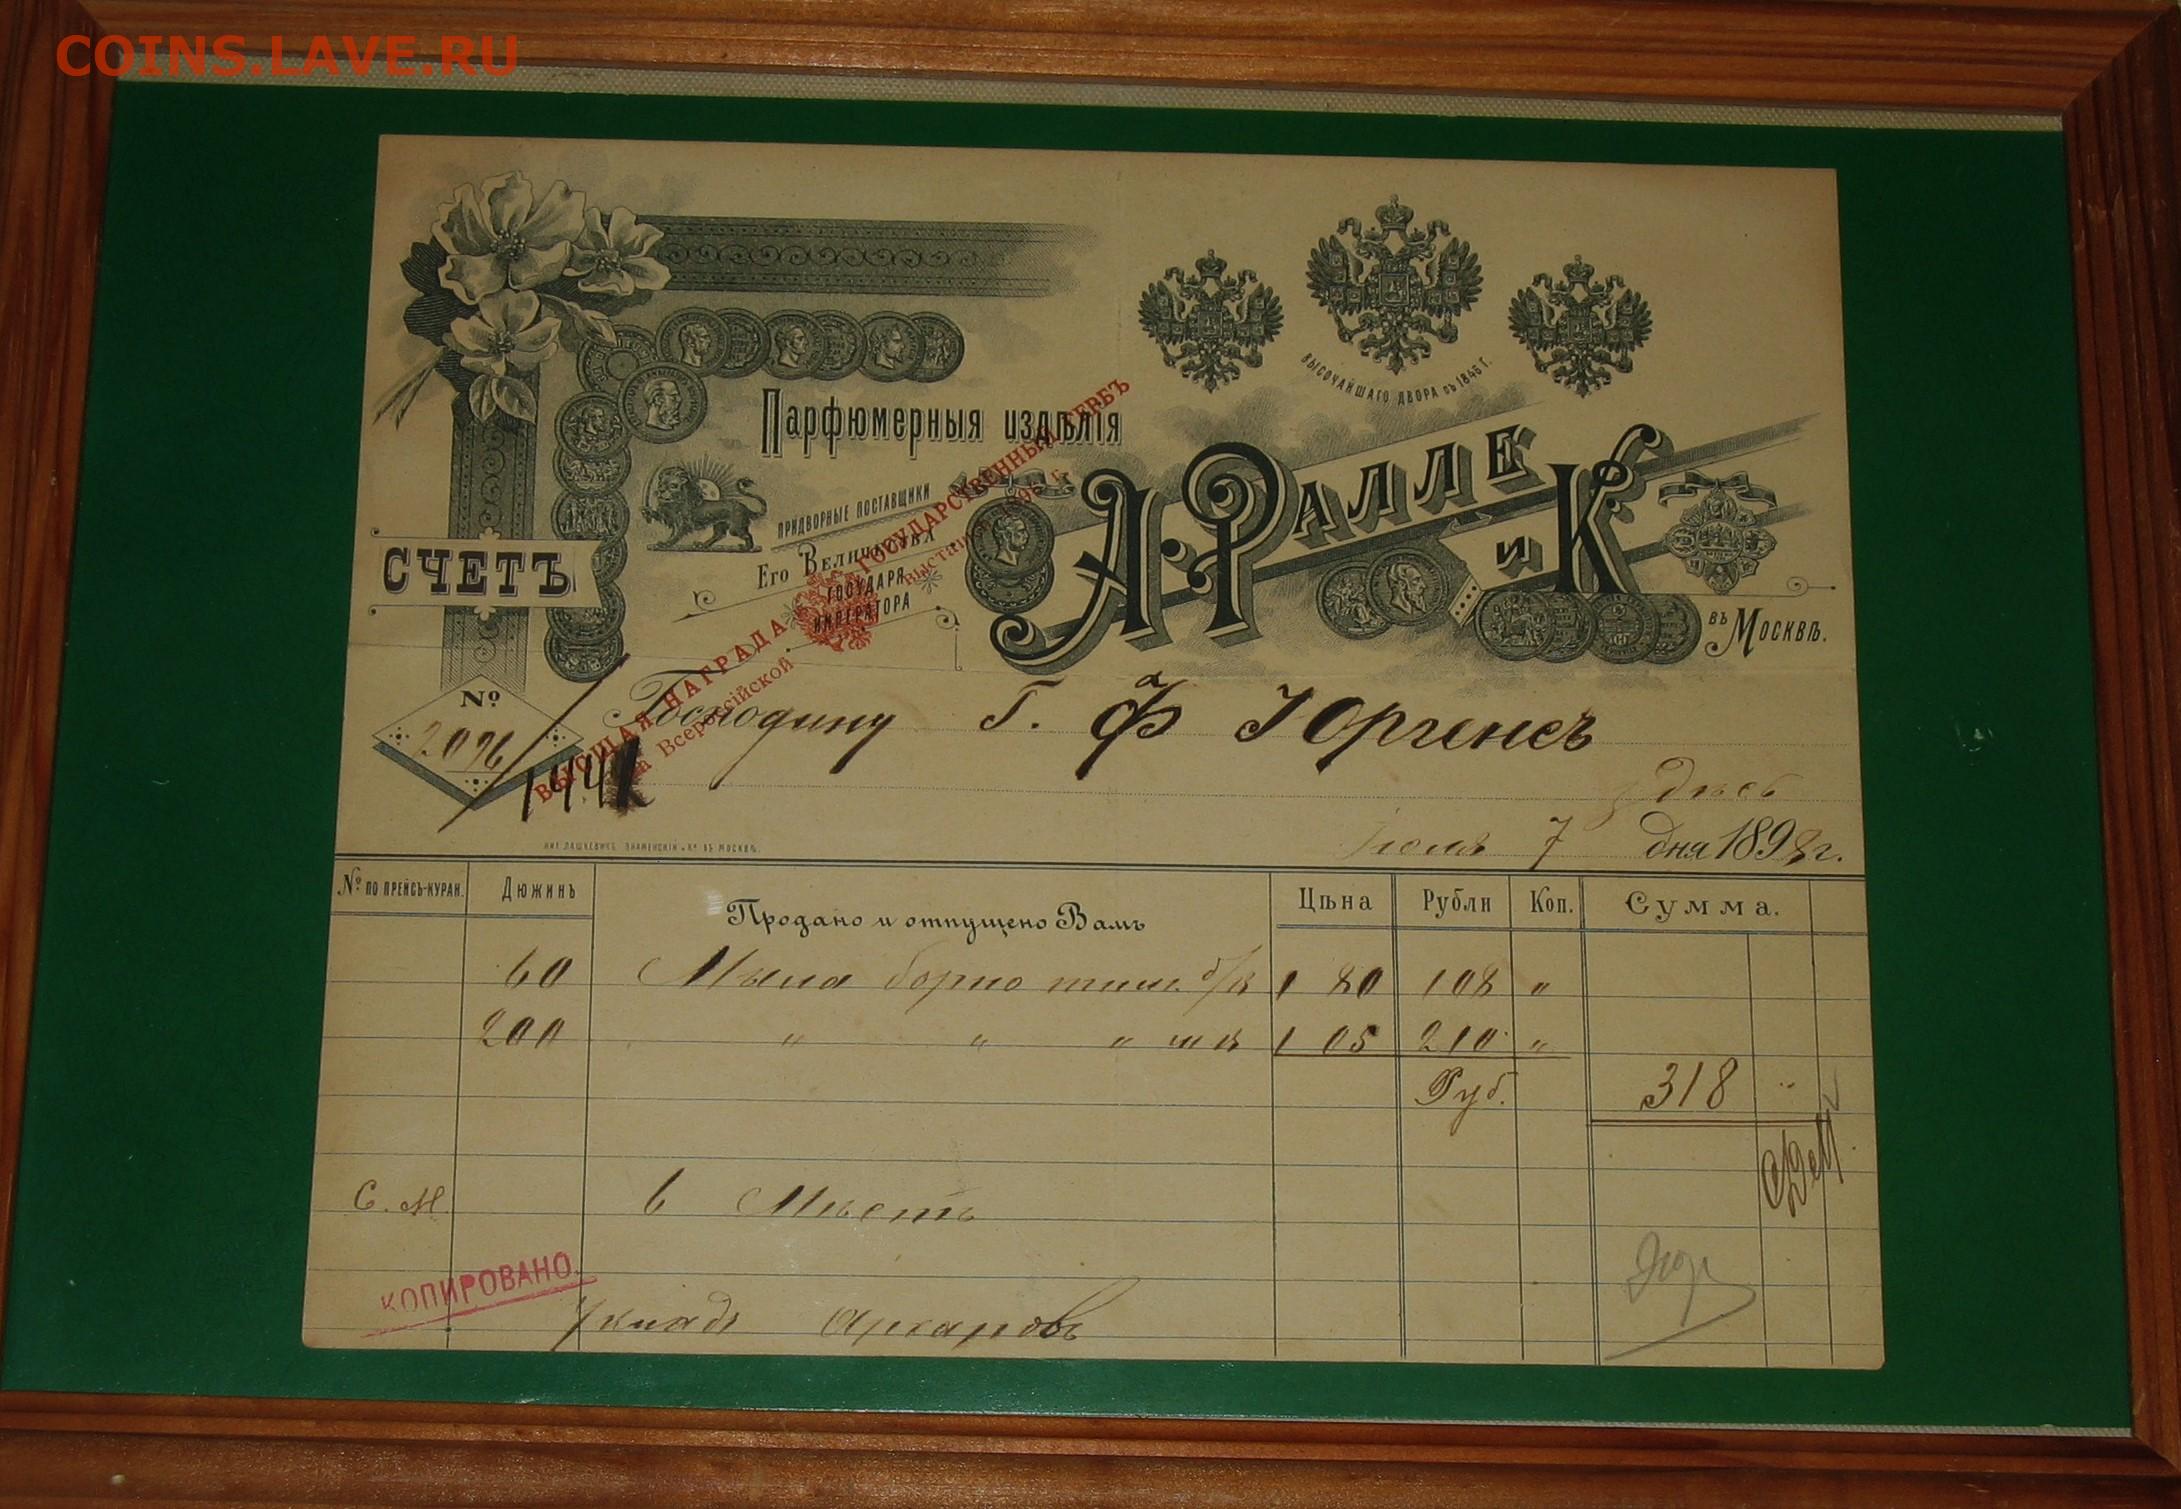 COINS.LAVE.RU
ВЫСОЧАЙШАГО ДВОРА съ 1845 г.
Парфюмерныя издѣлія
ПРИДВОРНЫЕ ПОСТАВЩИКИ
Его Величества
ГОСУДАРЯ
ИМПЕРАТОРА
А. Ралле и К
въ Москвѣ.
ВЫСШАЯ НАГРАДА ГОСУДАРСТВЕННЫЙ ГЕРБЪ
на Всероссійской выставкѣ 1896 г.
СЧЕТЪ
№
2096
1441
Господину Г. Ф Юргенсъ
здѣсь
Іюля 7 дня 1898 г.
№ ПО ПРЕЙСЪ-КУРАН. Дюжинъ Продано и отпущено Вамъ Цѣна Рубли Коп. Сумма.
60 Мыла борно тим. б/к 1 80 108 "
200 " " " 1 05 210 "
Руб. 318 "
С. М. 6 Мѣстъ
КОПИРОВАНО.